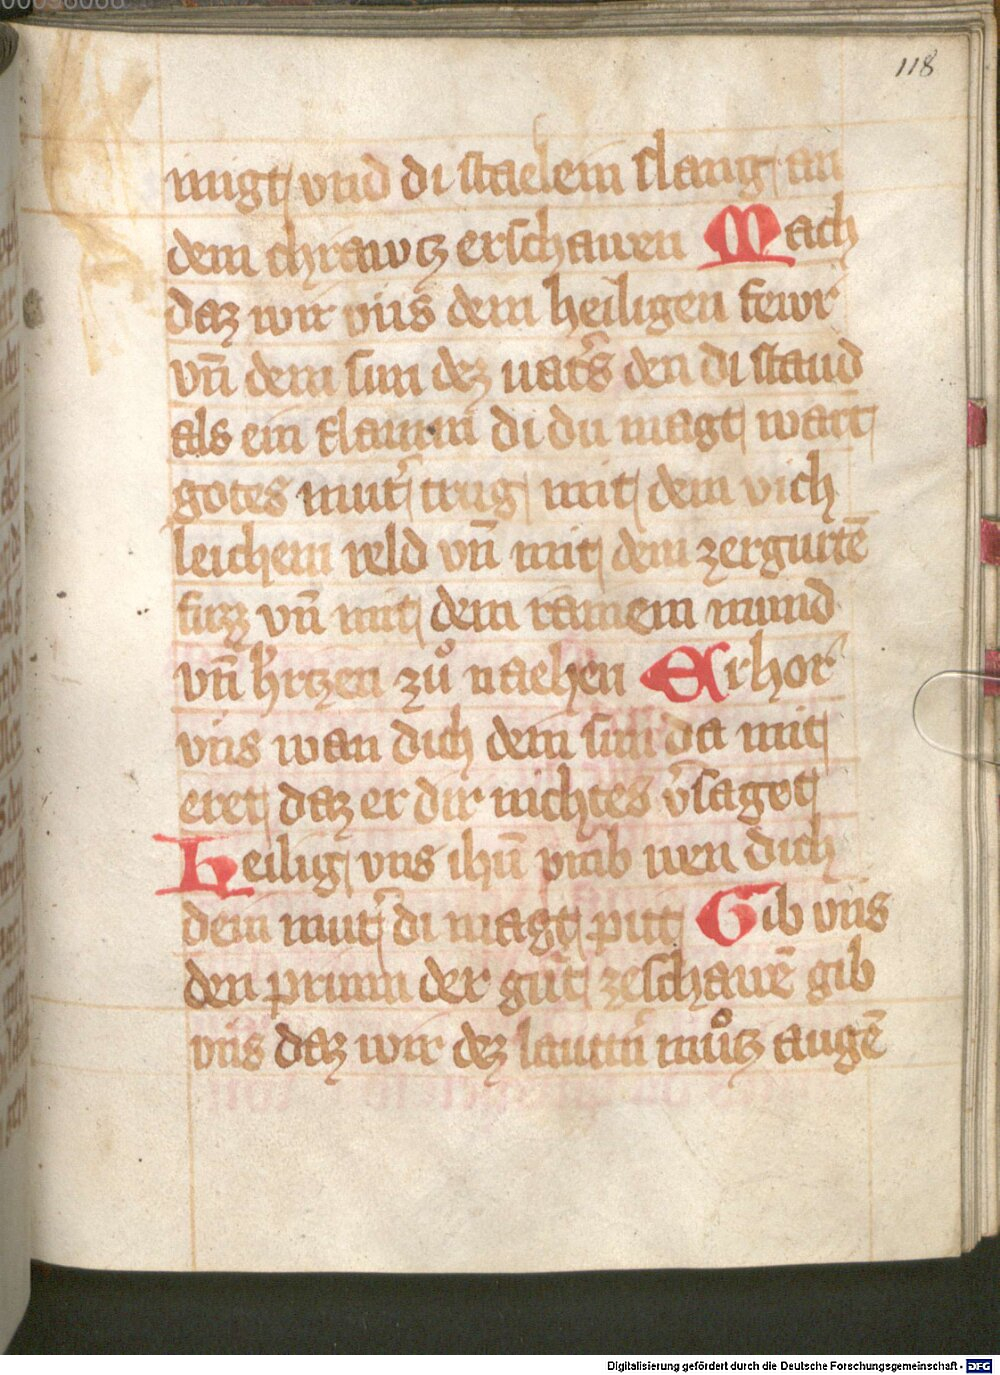 00098066
118
mugt vnd di staelein slang an
dem chrawtz erschawen Mach
daz wir vns dem heiligen fewr
vn̄ dem sun dez uat͛s den di staud
als ein flamm di du magt wart
gotes mut͛ trug mit dem vich
leichem reld vn̄ mit dem zergurtē
fuzz vn̄ mit dem rainem mund
vn̄ h͛rtzen zuͦ nachen Erhor
vns wan dich dein sun da mit
eret daz er dir nichtes v͛sagt
Heilig vns ihū vmb wen dich
dein mut͛ di magt pitt Gib vns
den prunn der guͤt zeschawē gib
vns daz wir dez lautt͛n muͦtz augē
Digitalisierung gefördert durch die Deutsche Forschungsgemeinschaft - DFG